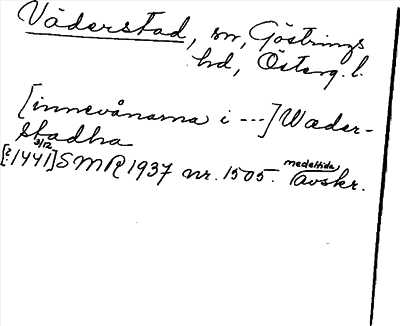 Väderstad, sn, Göstrings
hd, Österg. l.
[innevånarna i ---] Wæder-
stadha
3/12
[?1441] SMR 1937 nr. 1505. medeltida avskr.